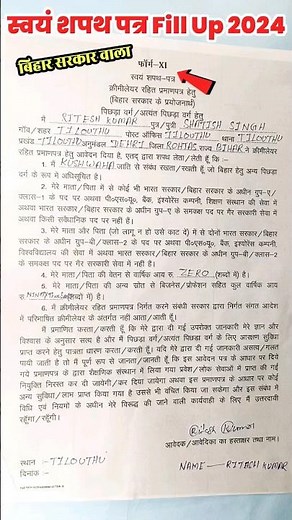 स्वयं शपथ पत्र Fill Up 2024
बिहार सरकार वाला
फॉर्म-XI
स्वयं शपथ-पत्र
क्रीमीलेयर रहित प्रमाणपत्र हेतु
(बिहार सरकार के प्रयोजनार्थ)
पिछड़ा वर्ग/अत्यंत पिछड़ा वर्ग हेतु
मैं RITESH KUMAR पुत्र/पुत्री SHATISH SINGH
गाँव/शहर TILOUTHU पोस्ट ऑफिस TILOUTHU थाना TILOUTHU
प्रखंड TILOUTHU अनुमंडल DEHRI जिला ROHTAS राज्य BIHAR ने क्रीमीलेयर
रहित प्रमाणपत्र हेतु आवेदन दिया है, एतद् द्वारा शपथ लेता/लेती हूँ कि -
1. मैं KUSHWAHA जाति से संबंध रखता/रखती हूँ, जो बिहार हेतु अन्य पिछड़ा
वर्ग के रूप में अधिसूचित है।
2. मेरे माता/पिता में से कोई भी भारत सरकार/बिहार सरकार के अधीन ग्रुप-ए/
क्लास-1 के पद पर अथवा पी०एस०यू०, बैंक, इंश्योरेंस कंपनी, शिक्षण संस्थान की सेवा में
अथवा भारत सरकार/बिहार सरकार के अधीन ग्रुप-ए के समकक्ष पद पर गैर सरकारी सेवा में
अथवा किसी संवैधानिक पद पर नहीं हैं।
3. मेरे माता और पिता (जो लागू न हो उसे काट दें) में से दोनों भारत सरकार/बिहार
सरकार के अधीन ग्रुप-बी/क्लास-2 के पद पर अथवा पी०एस०यू०, बैंक, इंश्योरेंस कंपनी,
विश्वविद्यालय की सेवा में अथवा भारत सरकार/बिहार सरकार के अधीन ग्रुप-बी/क्लास-2
के समकक्ष पद पर गैर सरकारी सेवा में नहीं है।
4. मेरे माता/पिता की वेतन से वार्षिक आय रू० ZERO (शब्दों में) है।
5. मेरे माता/पिता की अन्य स्रोत से बिजनेस/प्रोफेशन सहित कुल वार्षिक आय
(शब्दों में) है।
6. मैं क्रीमीलेयर रहित प्रमाणपत्र निर्गत करने संबंधी सरकार द्वारा निर्गत संगत आदेश
में परिभाषित क्रीमीलेयर के अंतर्गत नहीं आता/आती हूँ।
मैं प्रमाणित करता/करती हूँ कि मेरे द्वारा दी गई उपरोक्त जानकारी मेरे ज्ञान और
विश्वास के अनुसार सत्य है और मैं पिछड़ा वर्ग/अत्यंत पिछड़ा वर्ग के लिए आरक्षण सुविधा
प्राप्त करने हेतु पात्रता धारण करता/करती हूँ। यदि मेरे द्वारा दी गई जानकारी असत्य/गलत
पायी जाती है तो मैं पूर्ण रूप से जानता/जानती हूँ कि इस आवेदन पत्र के आधार पर दिये
गये प्रमाणपत्र द्वारा शैक्षणिक संस्थान में लिया गया प्रवेश/लोक सेवाओं में प्राप्त की गई
नियुक्ति निरस्त कर दी जायेगी/कर दिया जायेगा अथवा इस प्रमाणपत्र के आधार पर कोई
अन्य सुविधा/लाभ प्राप्त किया गया है उससे भी वंचित किया जा सकेगा और इस संबंध में
विधि एवं नियमों के अधीन मेरे विरूद्ध की जाने वाली कार्यवाही के लिए मैं उत्तरदायी
रहूँगा/रहूँगी।
Ritesh Kumar
आवेदक/आवेदिका का हस्ताक्षर तथा नाम।
स्थान - TILOUTHU
NAME - RITESH KUMAR
दिनांक -